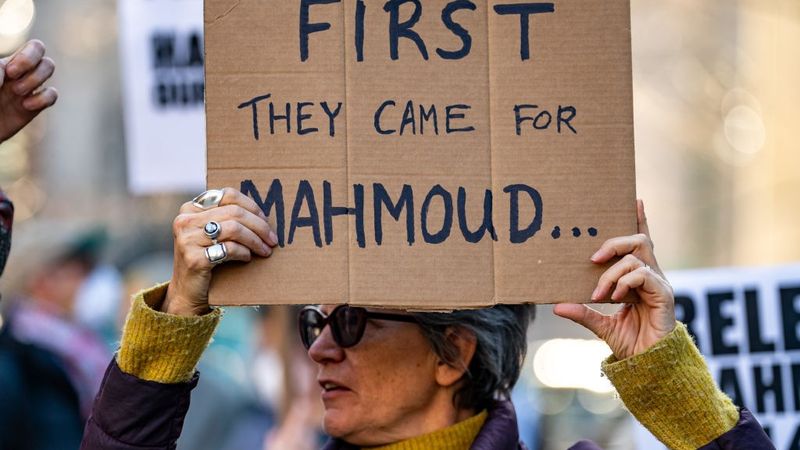 FIRST
THEY CAME FOR
MAHMOUD...
RELE